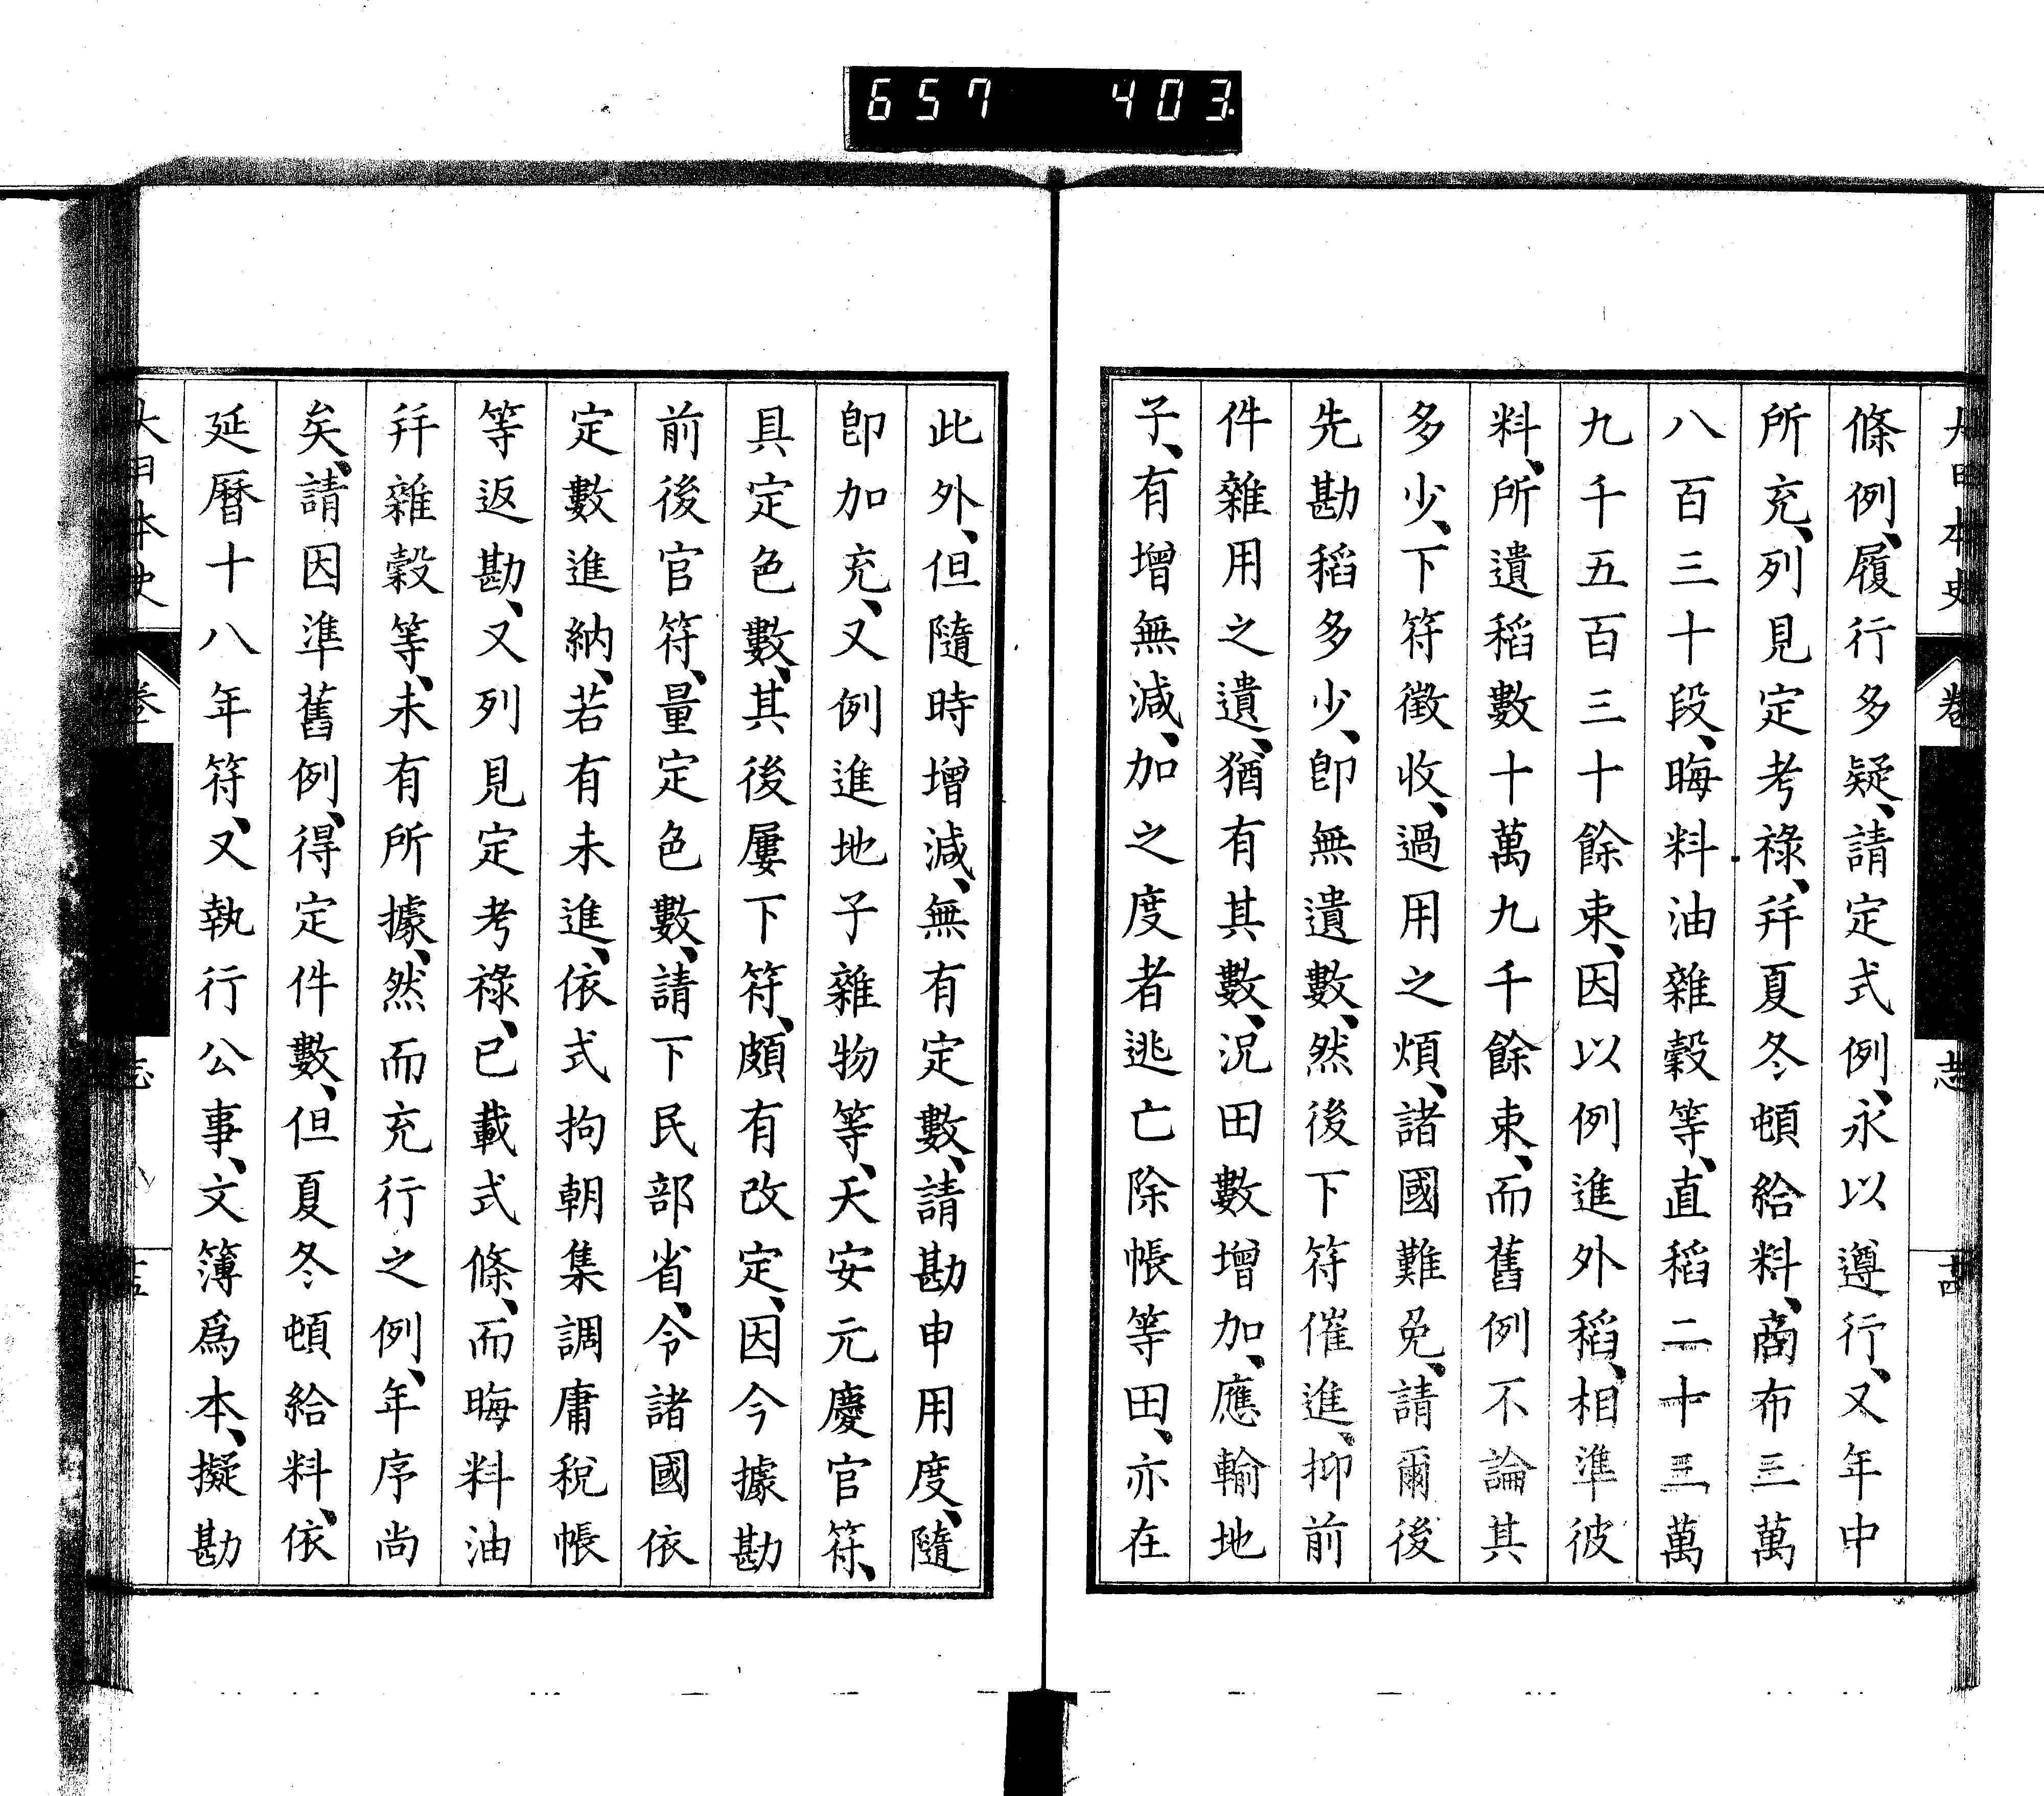 657 403
大日本史 卷 志 十四
條例、履行多疑、請定式例、永以遵行、又年中
所充、列見定考祿、幷夏冬頓給料、商布三萬
八百三十段、晦料油雜穀等、直稻二十三萬
九千五百三十餘束、因以例進外稻、相準彼
料、所遺稻數十萬九千餘束、而舊例不論其
多少、下符徵收、過用之煩、諸國難免、請爾後
先勘稻多少、卽無遺數、然後下符催進、抑前
件雜用之遺、猶有其數、況田數增加、應輸地
子、有增無減、加之度者逃亡除帳等田、亦在
此外、但隨時增減、無有定數、請勘申用度、隨
卽加充、又例進地子雜物等、天安元慶官符、
具定色數、其後屢下符、頗有改定、因今據勘
前後官符、量定色數、請下民部省、令諸國依
定數進納、若有未進、依式拘朝集調庸稅帳
等返勘、又列見定考祿、已載式條、而晦料油
幷雜穀等、未有所據、然而充行之例、年序尚
矣、請因準舊例、得定件數、但夏冬頓給料、依
延曆十八年符、又執行公事、文簿爲本、擬勘
大日本史 卷 志 十五